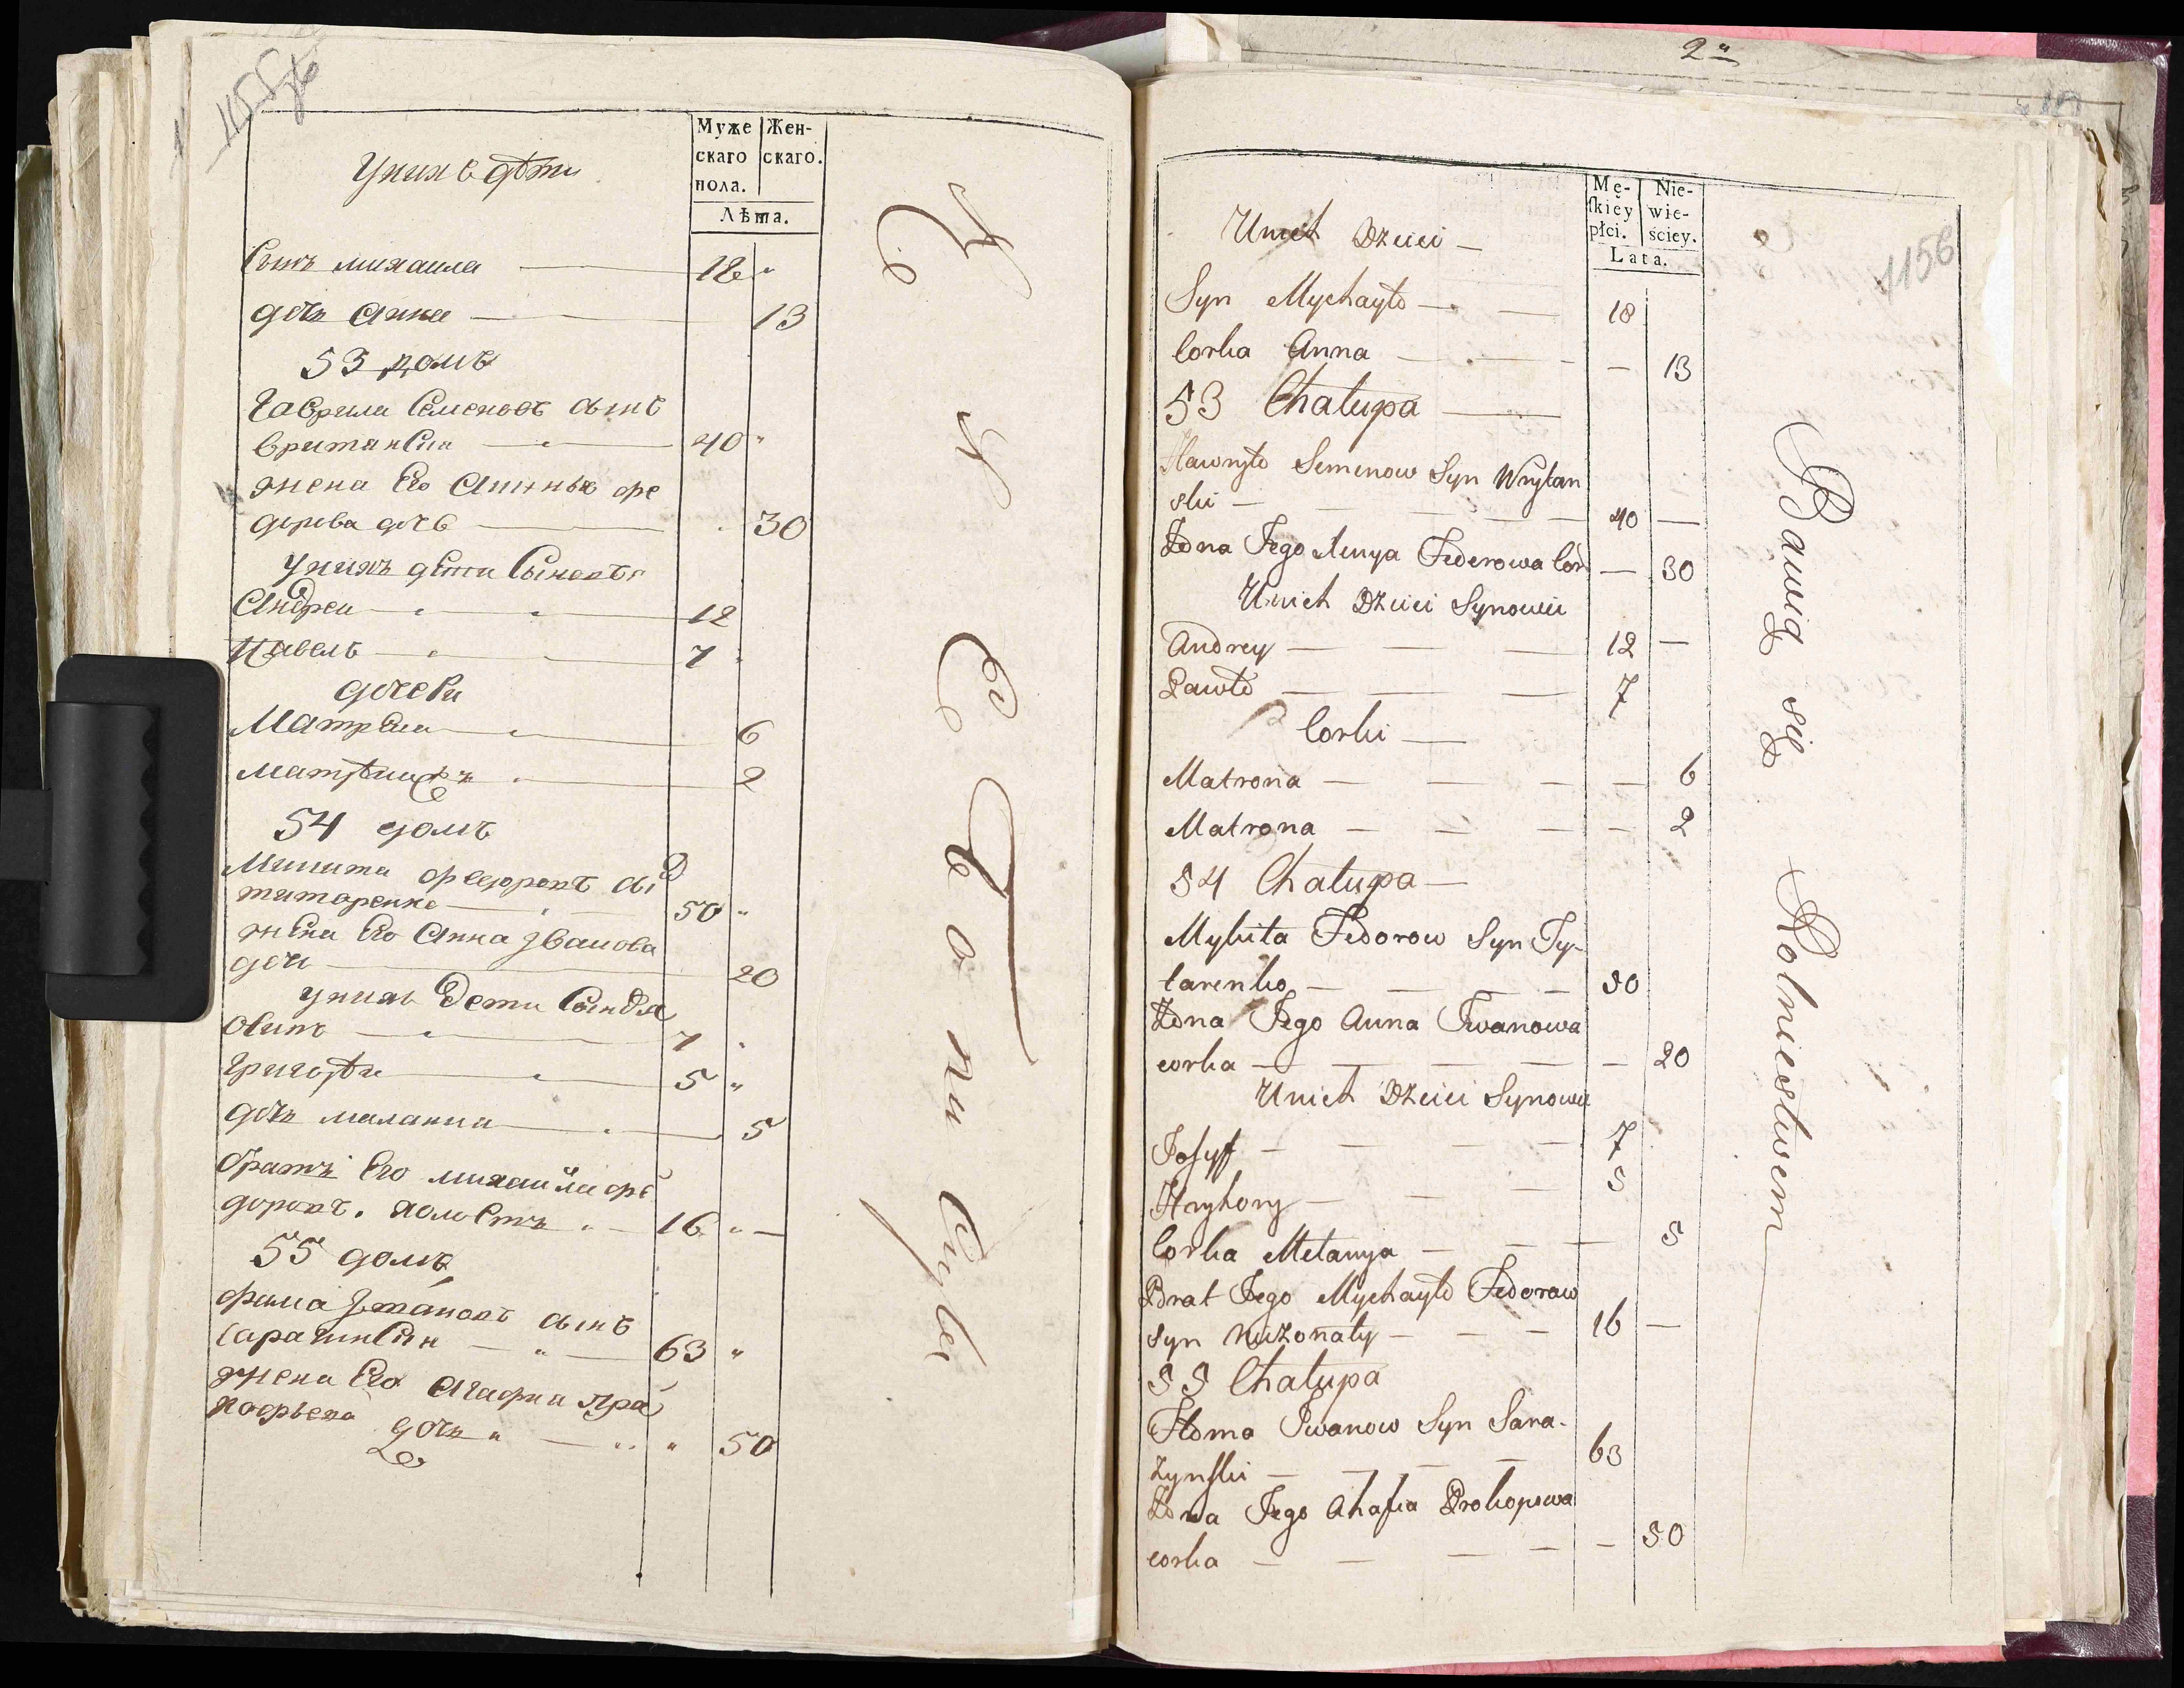 1155
Муже Жен-
скаго скаго.
пола.
Лѣта.
Унихъ дѣти
Сынъ михаила 18
дочь Анна 13
53 домъ
Гаврила Семеновъ сынъ
вританскии 40
жена Его фе
дорова дочь 30
унихъ дети Сыновья
Андреи 12
Павелъ 7
дочери
Матрена 6
2
54 домъ
Микита федоровъ
титаренко 50
жена Его Анна Iванова
дочь 20
унихъ дети
Осипъ 7
Григорѣи 5
дочь малания 5
братъ Его михаила фе
доровъ. холостъ 16
55 домъ
фама сынъ
63
жена Его Агафия пра
кофьева дочь 50
2
Mę- Nie-
skiey wie-
płci. ściey.
Lata.
1156
Unich Dzieci
Syn Mychayło 18
Corka Anna 13
53 Chałupa
Hawryło Semenow Syn Wrytan
ski 40
Żona Jego Federowa Cor 30
Unich Dzieci Synowie
Andrey 12
Pawło 7
Corki
Matrona 6
Matrona 2
54 Chałupa
Mykita Fedorow Syn Ty-
tarenko 50
Żona Jego Anna Iwanowa
corka 20
Unich Dzieci Synowie
Josyf 7
Hryhory 5
Corka Melanya 5
Brat Jego Mychayło Fedorow
syn niezonaty 16
55 Chałupa
Homa Iwanow Syn Sara-
zynski 63
Żona Jego Ahafia Prokopowa
corka 50
Bawią się Rolnictwem